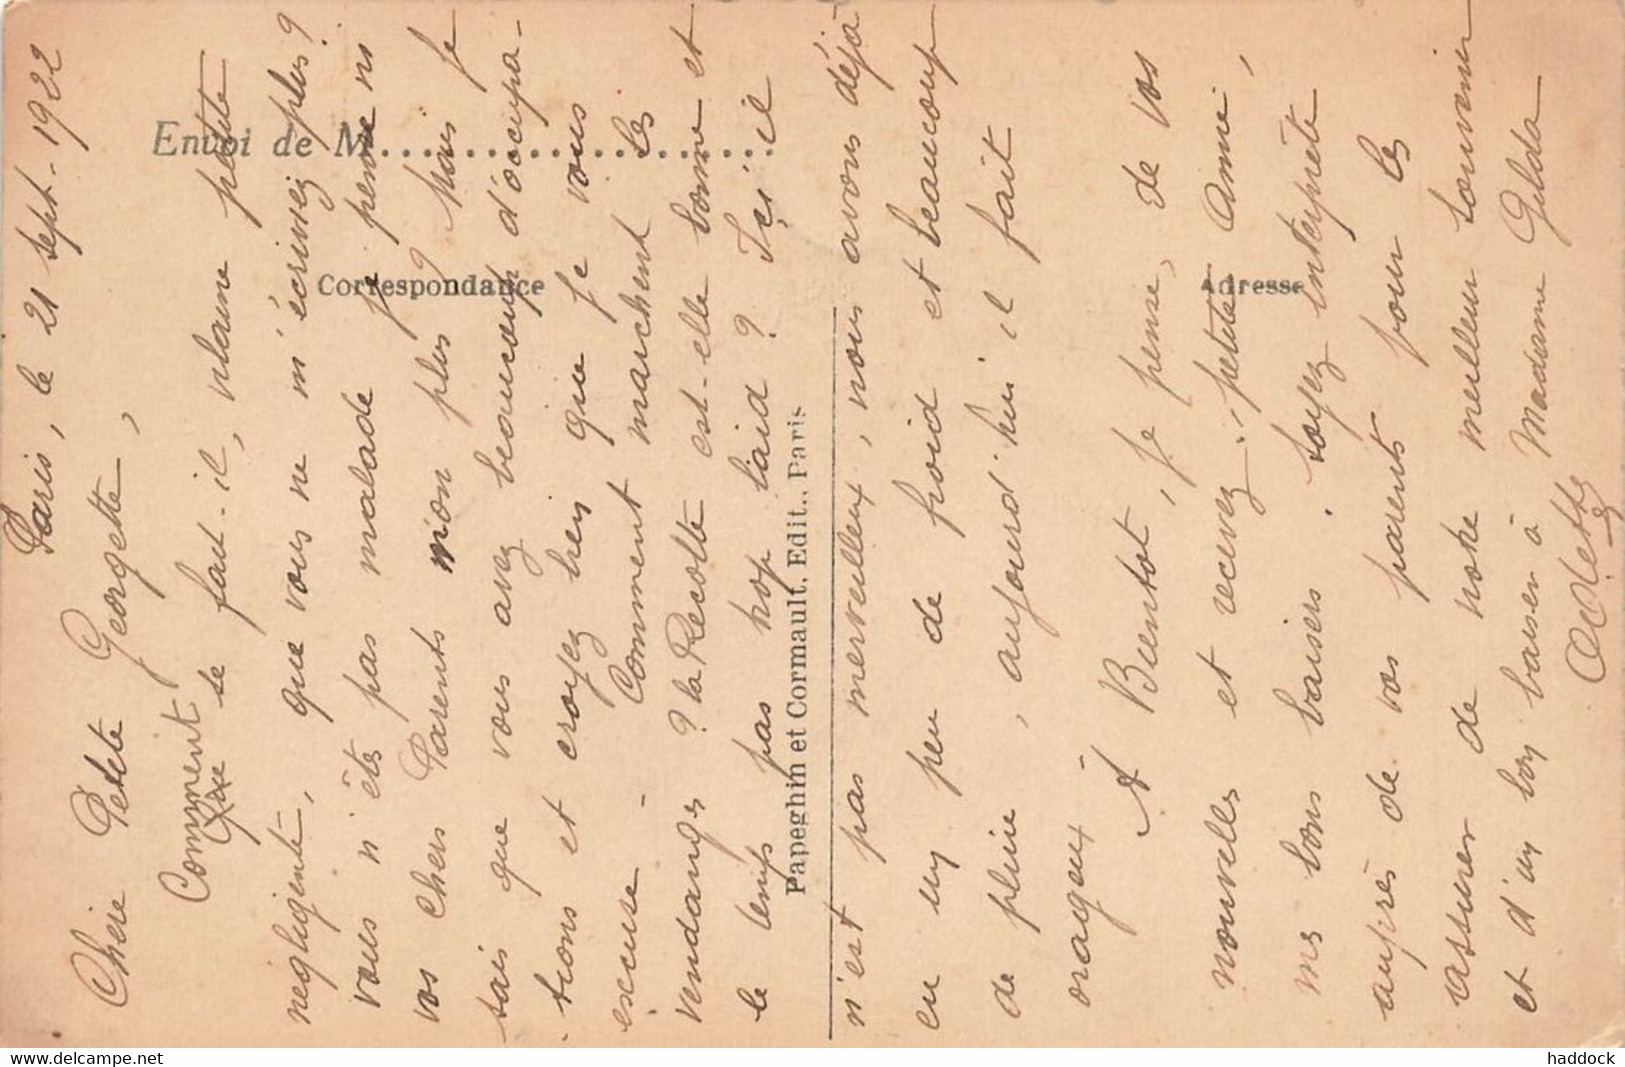 Paris, le 21 sept. 1922
Chère Petite Georgette,
Comment
se fait-il, vilaine petite
négligente, que vous ne m'écrivez plus ?
vous n'êtes pas malade je pense ni
vos chers Parents non plus ? Mais je
sais que vous avez beaucoup d'occupa-
tions et croyez bien que je vous
excuse - Comment marchent les
vendanges ? la Récolte est-elle bonne et
le temps pas trop laid ? Içi il
n'est pas merveilleux, nous avons déjà
eu un peu de froid et beaucoup
de pluie, aujourd'hui il fait
orageux
A Bientot, je pense, de vos
nouvelles et recevez, petite Amie,
mes bons baisers. soyez intérprète
auprès de vos parents pour les
assurer de notre meilleur souvenir
et d'un bon baiser à Madame Gilda
Odette
Envoi de M....................
Correspondance
Adresse
Papeghin et Cormault, Edit., Paris
www.delcampe.net
haddock